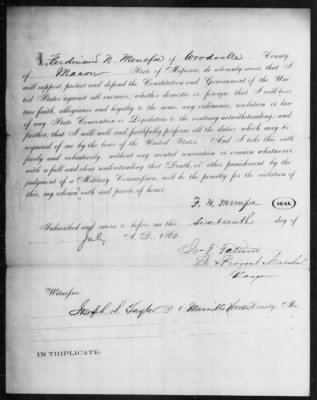 I, Ferdinand N. Menefee of Woodville County
of Macon State of Missouri, do solemnly swear that I
will support protect and defend the Constitution and Government of the Uni-
ted States against all enemies, whether domestic or foreign, that I will bear
true faith, allegiance and loyalty to the same, any ordinance, resolution or law
of any State Convention or Legislature to the contrary notwithstanding; and
further, that I will well and faithfully perform all the duties which may be
required of me by the laws of the United States. And I take this oath
freely and voluntarily, without any mental reservation or evasion whatsoever,
with a full and clear understanding that Death, or other punishment by the
judgment of a Military Commission, will be the penalty for the violation of
this, my solemn oath and parole of honor.
F. N. Menefee SEAL
Subscribed and sworn to before me this Sixteenth day of
July A. D. 1862
Lt & Provost Marshal
Macon
Witness:
Joseph S. Taylor County, Mo.
IN TRIPLICATE.